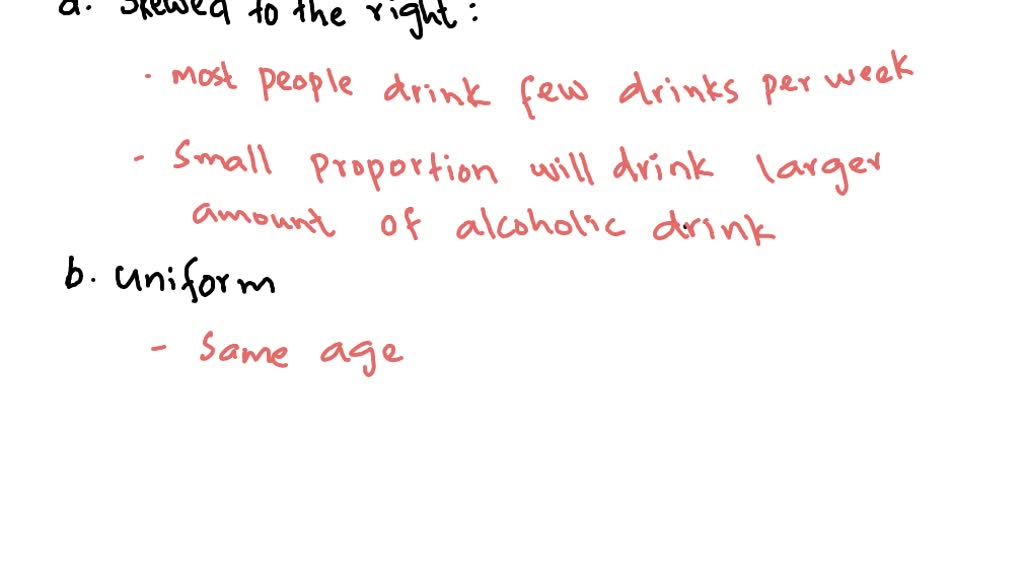 a. Skewed to the right:
· most people drink few drinks per week
- Small proportion will drink larger
amount of alcoholic drink
b. uniform
- Same age